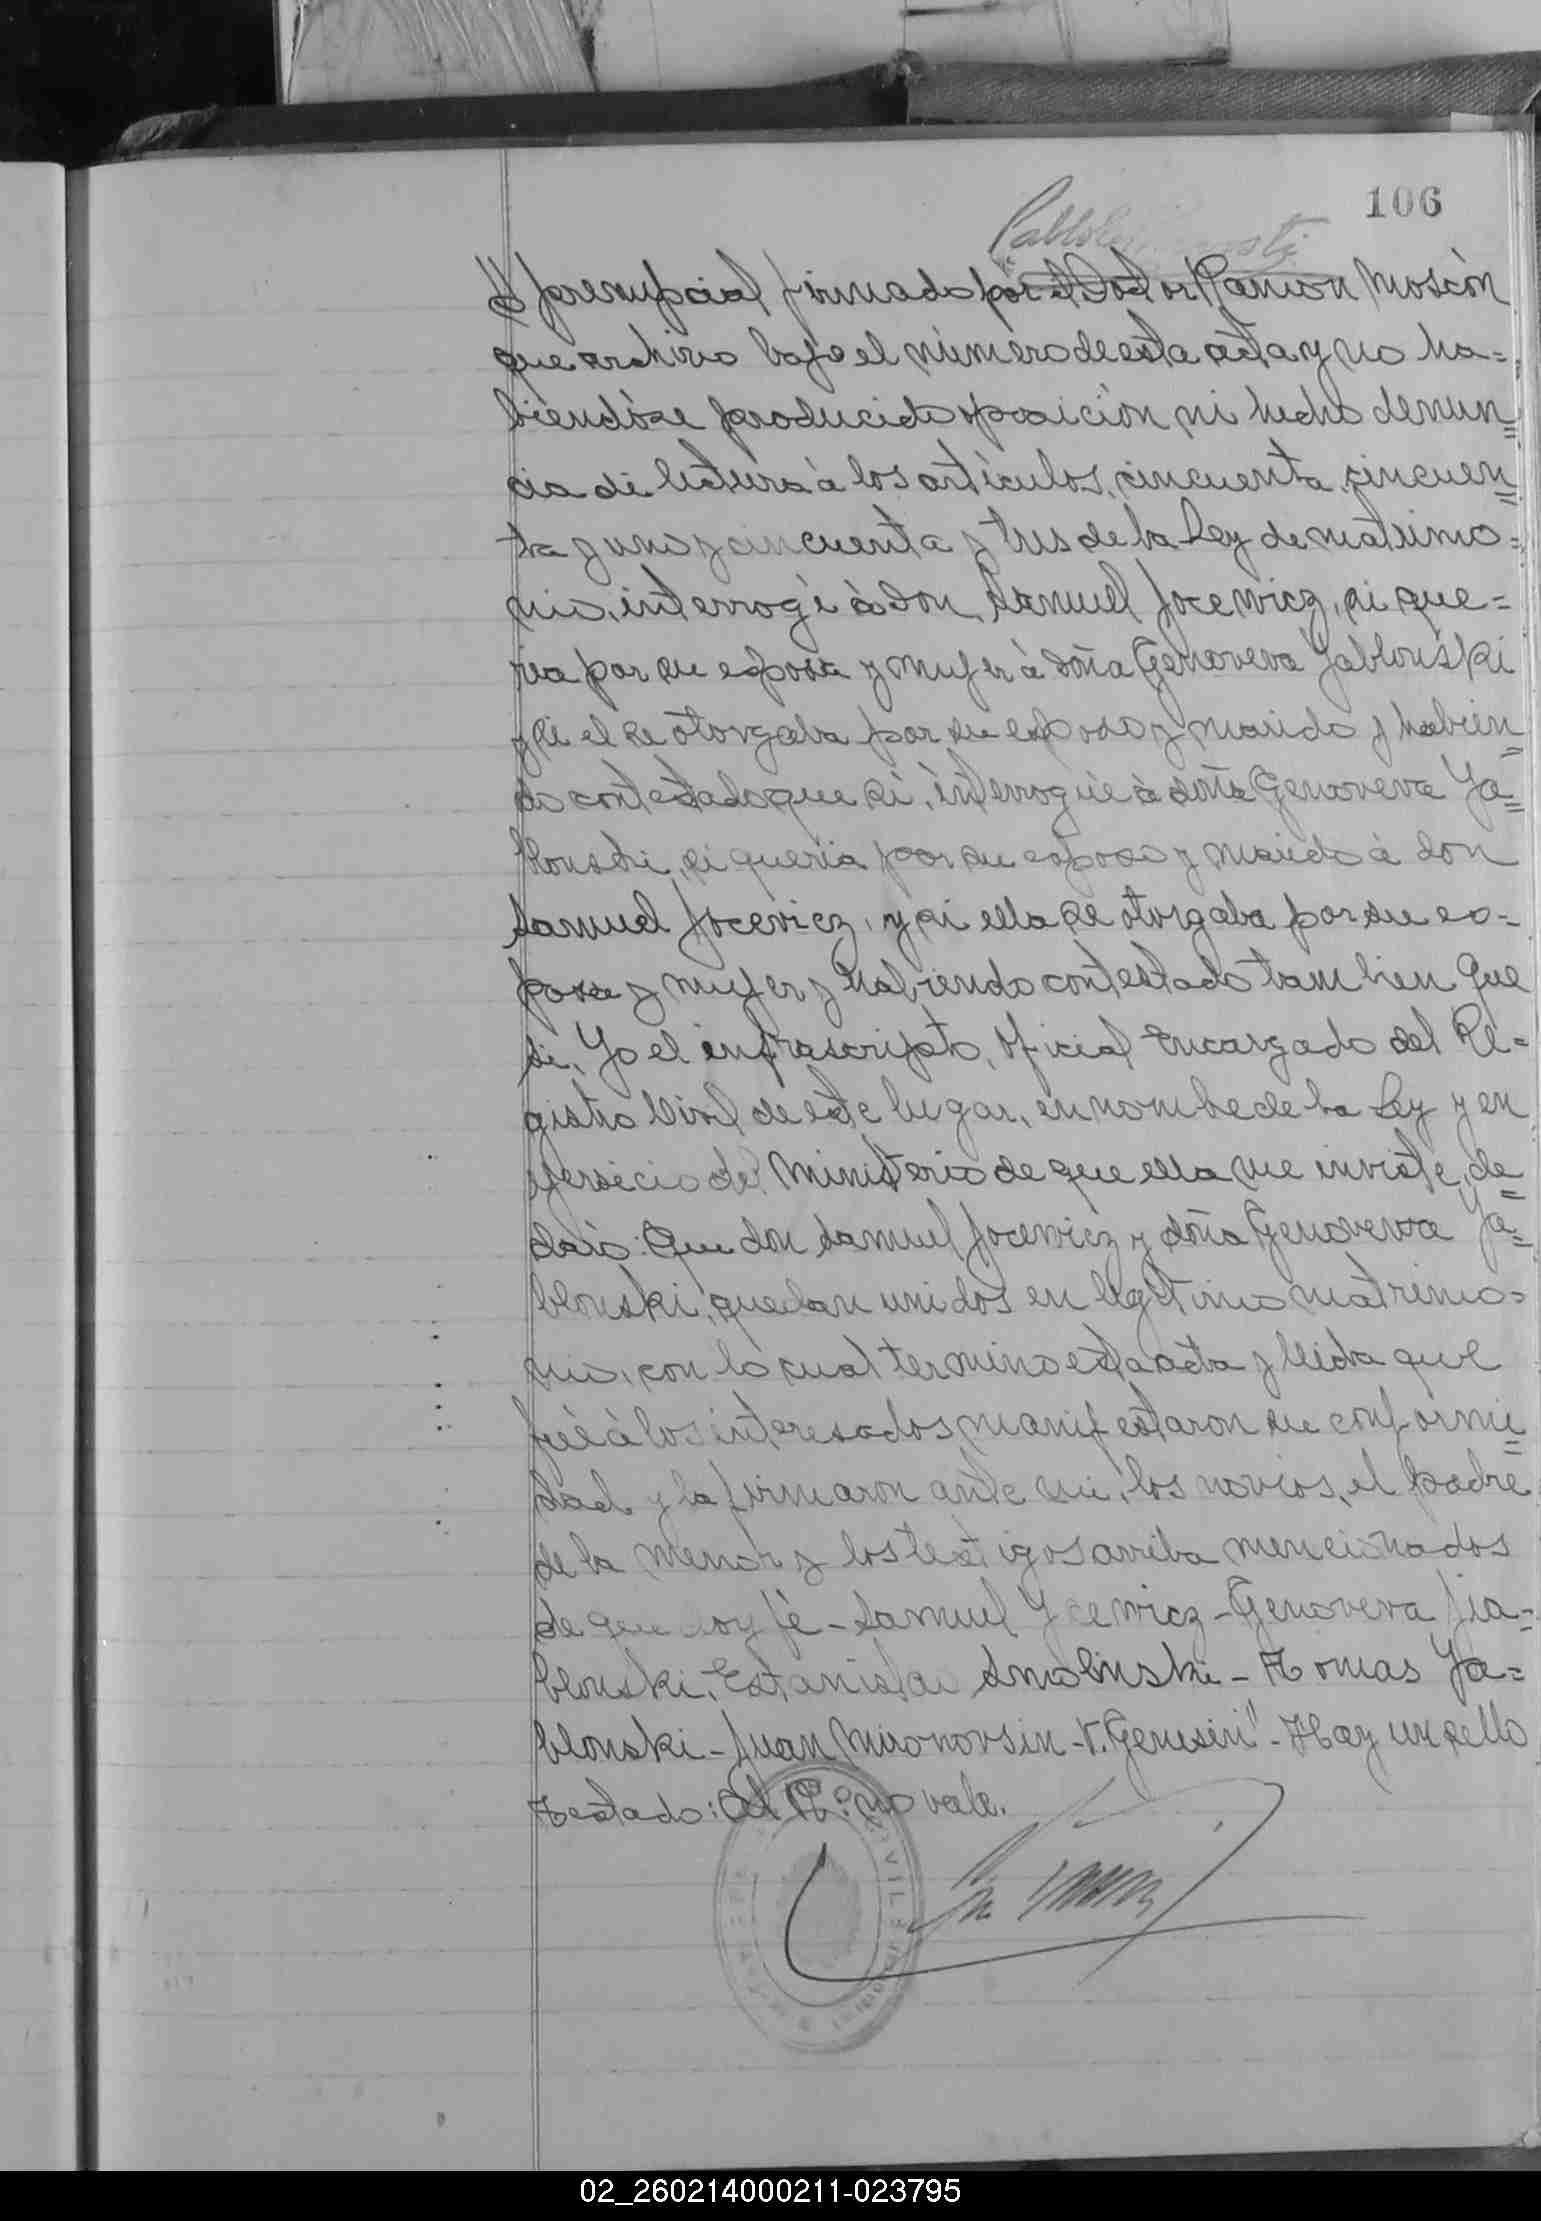 106
prenupcial firmado por el Doctor Ramon Moscón
que archivo bajo el número de esta acta y no ha=
biéndóse producido oposición ni hecho denun=
cia di lectura á los artículos, cincuenta, cincuen=
ta y uno y cincuenta y tres de la Ley de matrimo=
nio, interrogé á don Samuel Jocewicz, si que=
ria por su esposa y mujer á doña Genoveva Jablonski
y si el se otorgaba por su esposo y marido y habien=
do contestado que si, interrogué á doña Genoveva Ja=
blonski, si queria por su esposo y marido á don
Samuel Jocewicz, y si ella se otorgaba por su es=
posa y mujer y habiendo contestado tambien que
si, Yo el infrascripto, Oficial Encargado del Re=
gistro Civil de este lugar, en nombre de la Ley y en
ejersicio del Ministerio de que ella me inviste, de=
claro: Que don Samuel Jocewicz y doña Genoveva Ja=
blonski, quedan unidos en legitimo matrimo=
nio, con lo cual termino esta acta y leida que
fué á los interesados manifestaron su conformi=
dad y la firmaron ante mi, los novios, el padre
de la menor y los testigos arriba mencionados
de que doy fé - Samuel Jocewicz - Genoveva Jia=
blonski, Estanislao Smolinski - Tomas Ja=
blonski - Juan Mironovsin - V. Genesiri" - Hay un sello
Testado: no vale.
02_260214000211-023795